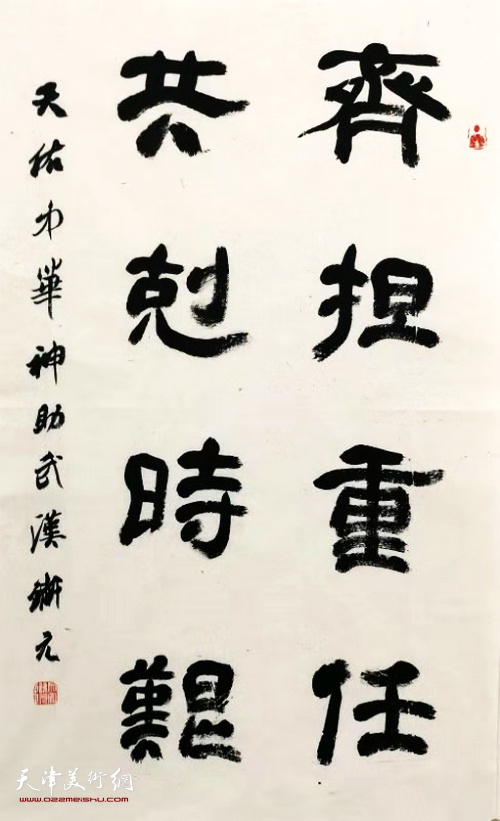 齊担重任
共剋時艱
天佑中華神助武漢 元
天津美術網
www.022meishu.com